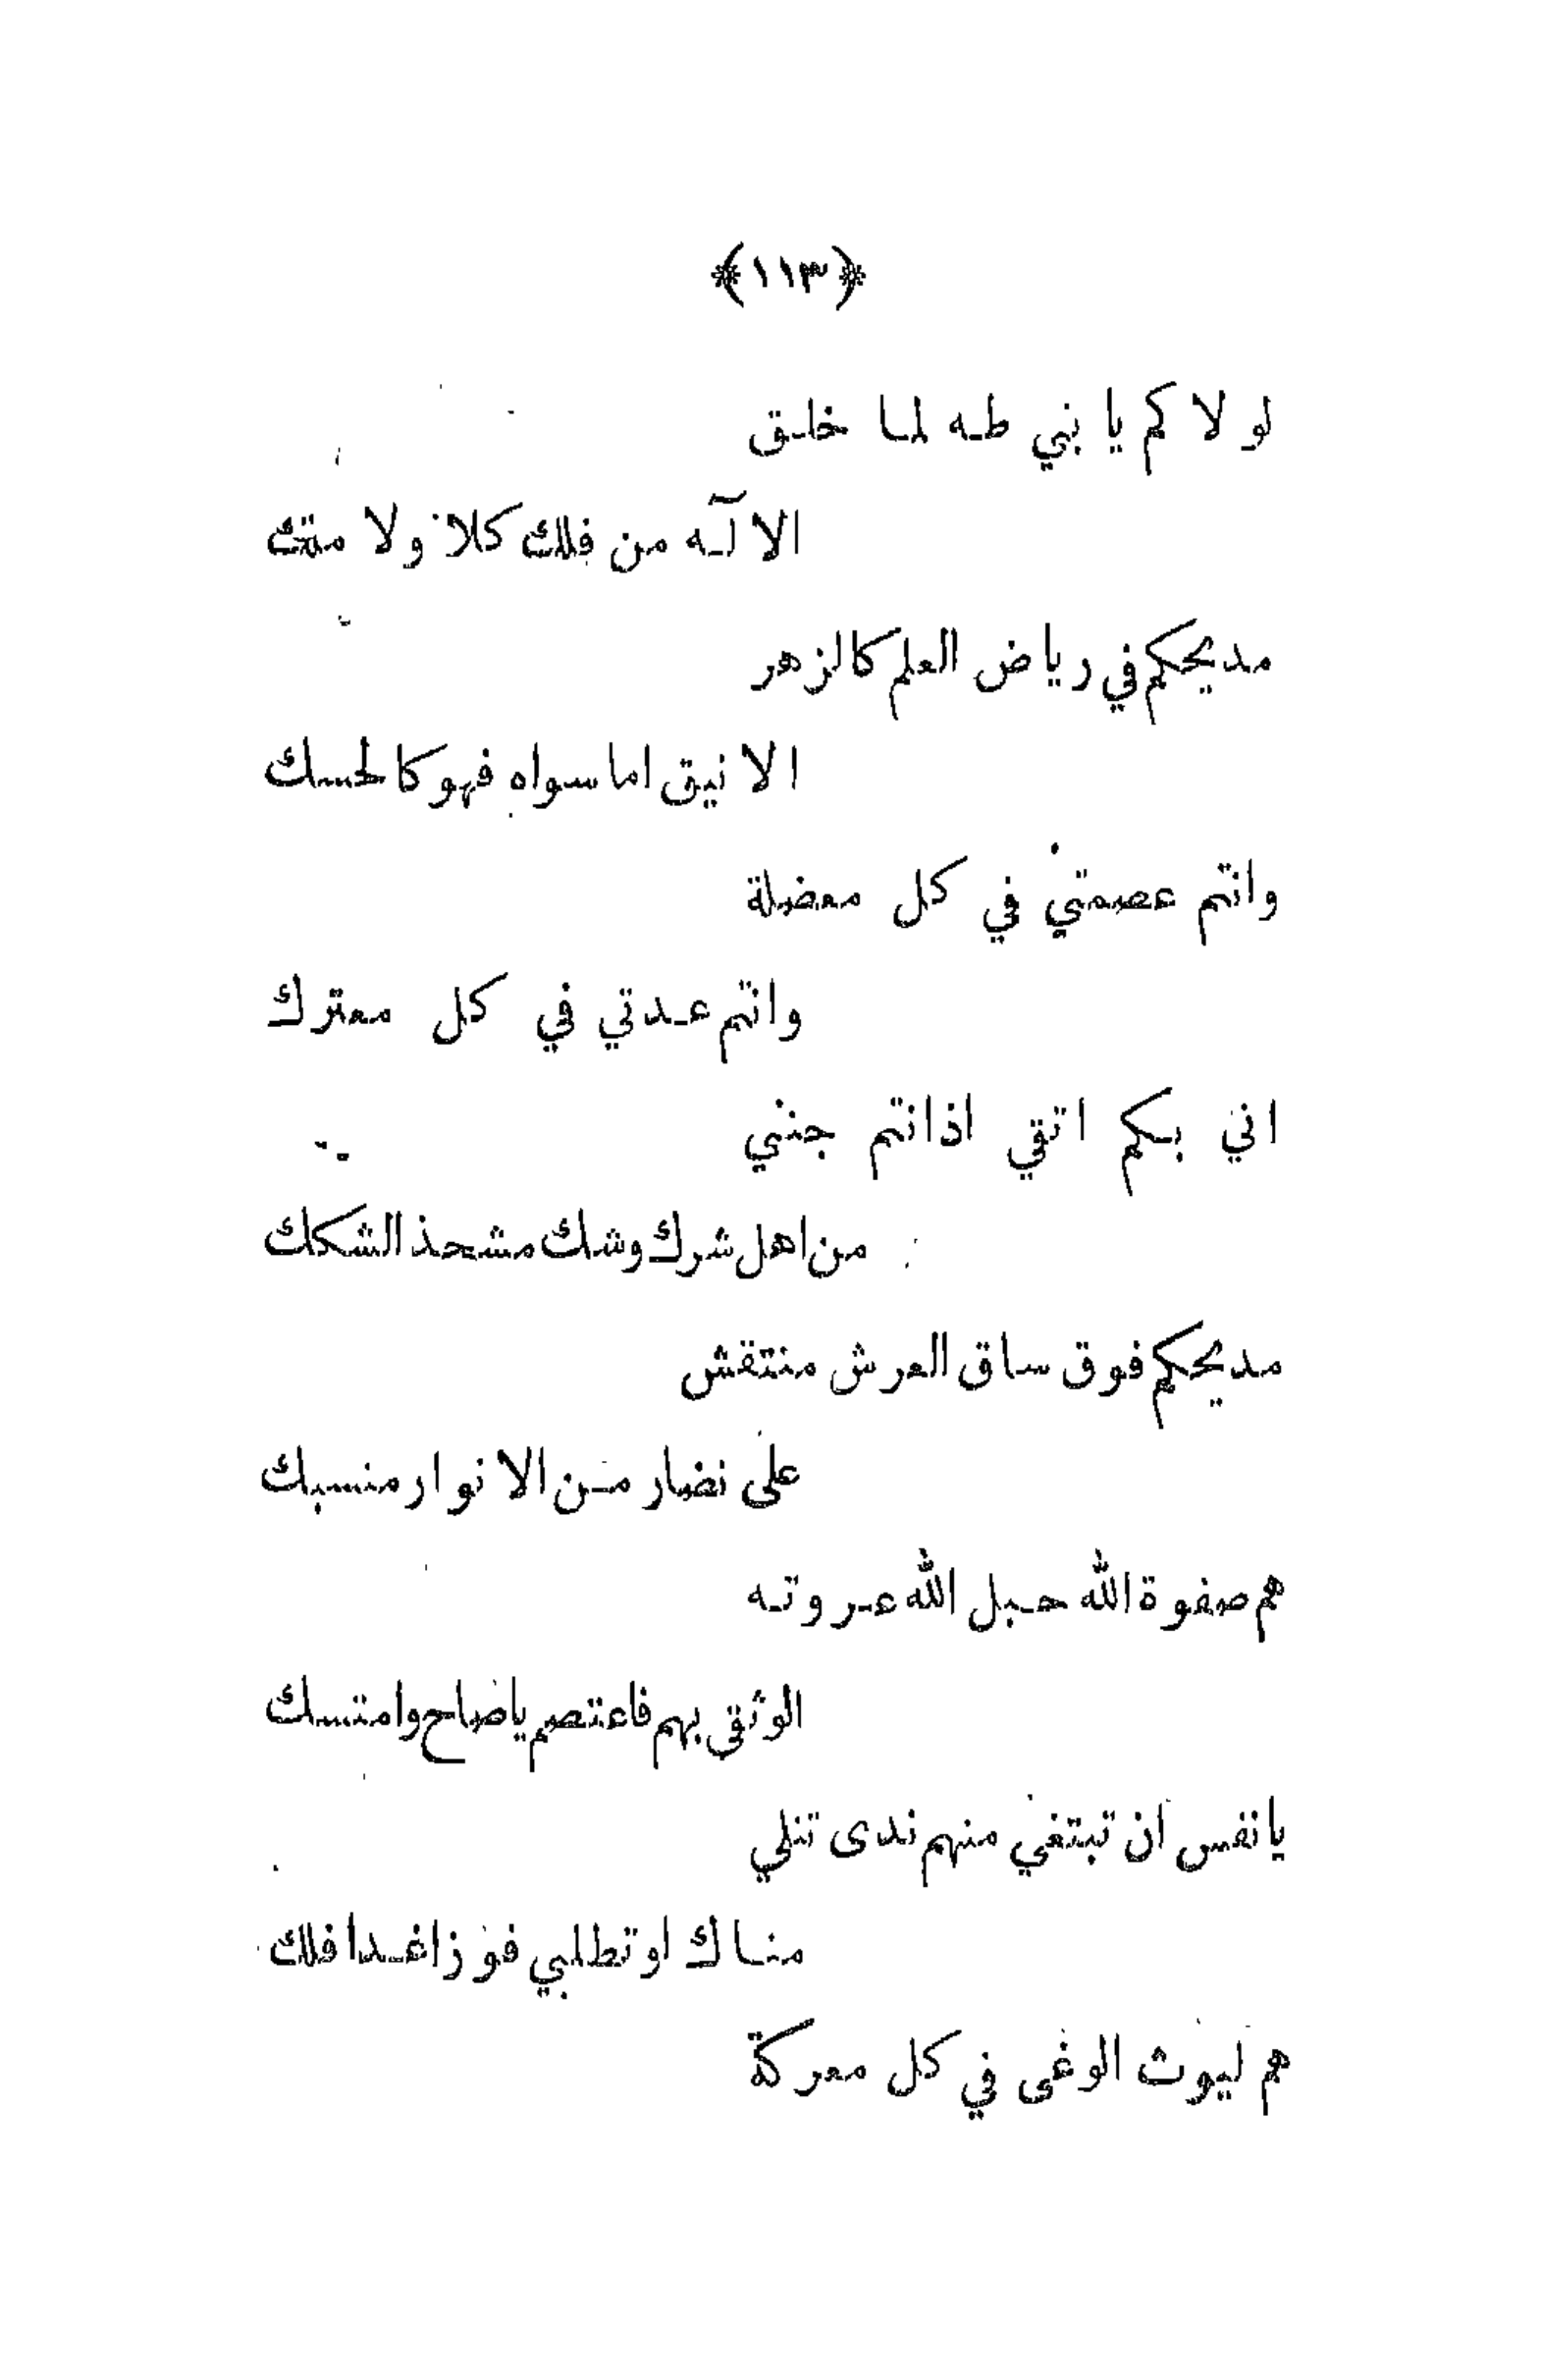 ﴿١١٣﴾
لولاكم يا بني طه لما خلق
الا لآله من فلك كلا ولا ملك
مديحكم في رياض العلم كالزهر
الانيق اما سواه فهو كالحسك
وانتم عصمتي في كل معضلة
وانتم عدتي في كل معترك
اني بكم اتقي اذانتم جنني
من اهل شرك وشك مشحذ الشكك
مديحكم فوق ساق العرش منتقش
على نضار من الانوار منسبك
هم صفوة الله حبل الله عروته
الوثقى بهم فاعتصم ياصاح وامتسك
يانفس ان تبتغي منهم ندى تنلي
مناك اوتطلبي فوزا غدا فلك
هم ليوث الوغى في كل معركة